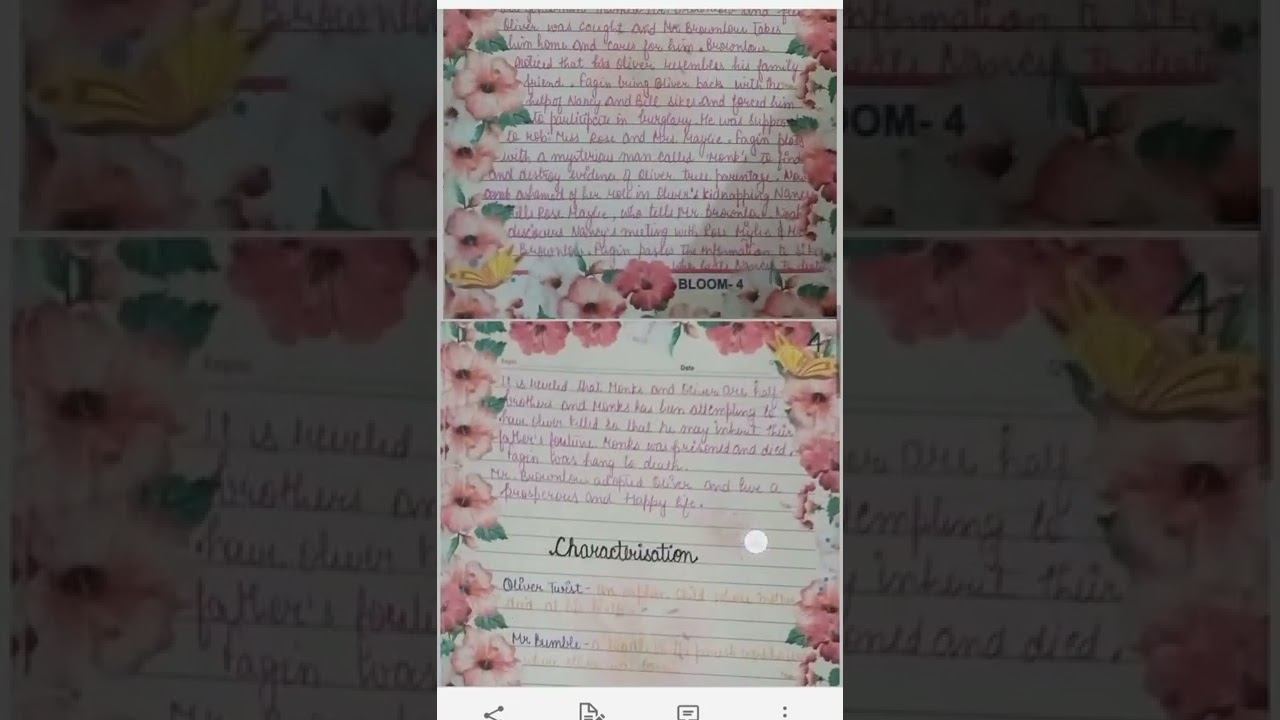 Oliver was caught and Mr. Brownlow takes
him home and cares for him. Brownlow
noticed that has Oliver resembles his family
friend. Fagin bring Oliver back with the
help of Nancy and Bill sikes and forced him
to participate in burglary. He was suppose
to rob Miss Rose and Mrs. Maylie. Fagin plots
with a mysterious man called Monk's to find
and destroy evidence of Oliver true parentage. Now
ashamed of her role in Oliver's kidnapping Nancy
tells Rose Maylie, who tells Mr. Brownlow. Noah
discovers Nancy's meeting with Rose Mylie & Mr.
Brownlow. Fagin passes the information to Sikes
who beats Nancy to death
BLOOM- 4
4
Date
It is reveled that Monks and Oliver are half
brothers and Monks has been attempting to
have Oliver killed so that he may inherit their
father's fortune. Monks was prisoned and died.
Fagin was hang to death.
Mr. Brownlow adopted Oliver and live a
prosperous and Happy life.
Characterisation
Oliver Twist - An orphan child whose mother
died at his birth.
Mr. Bumble - a beadle in the parish workhouse
where Oliver was born